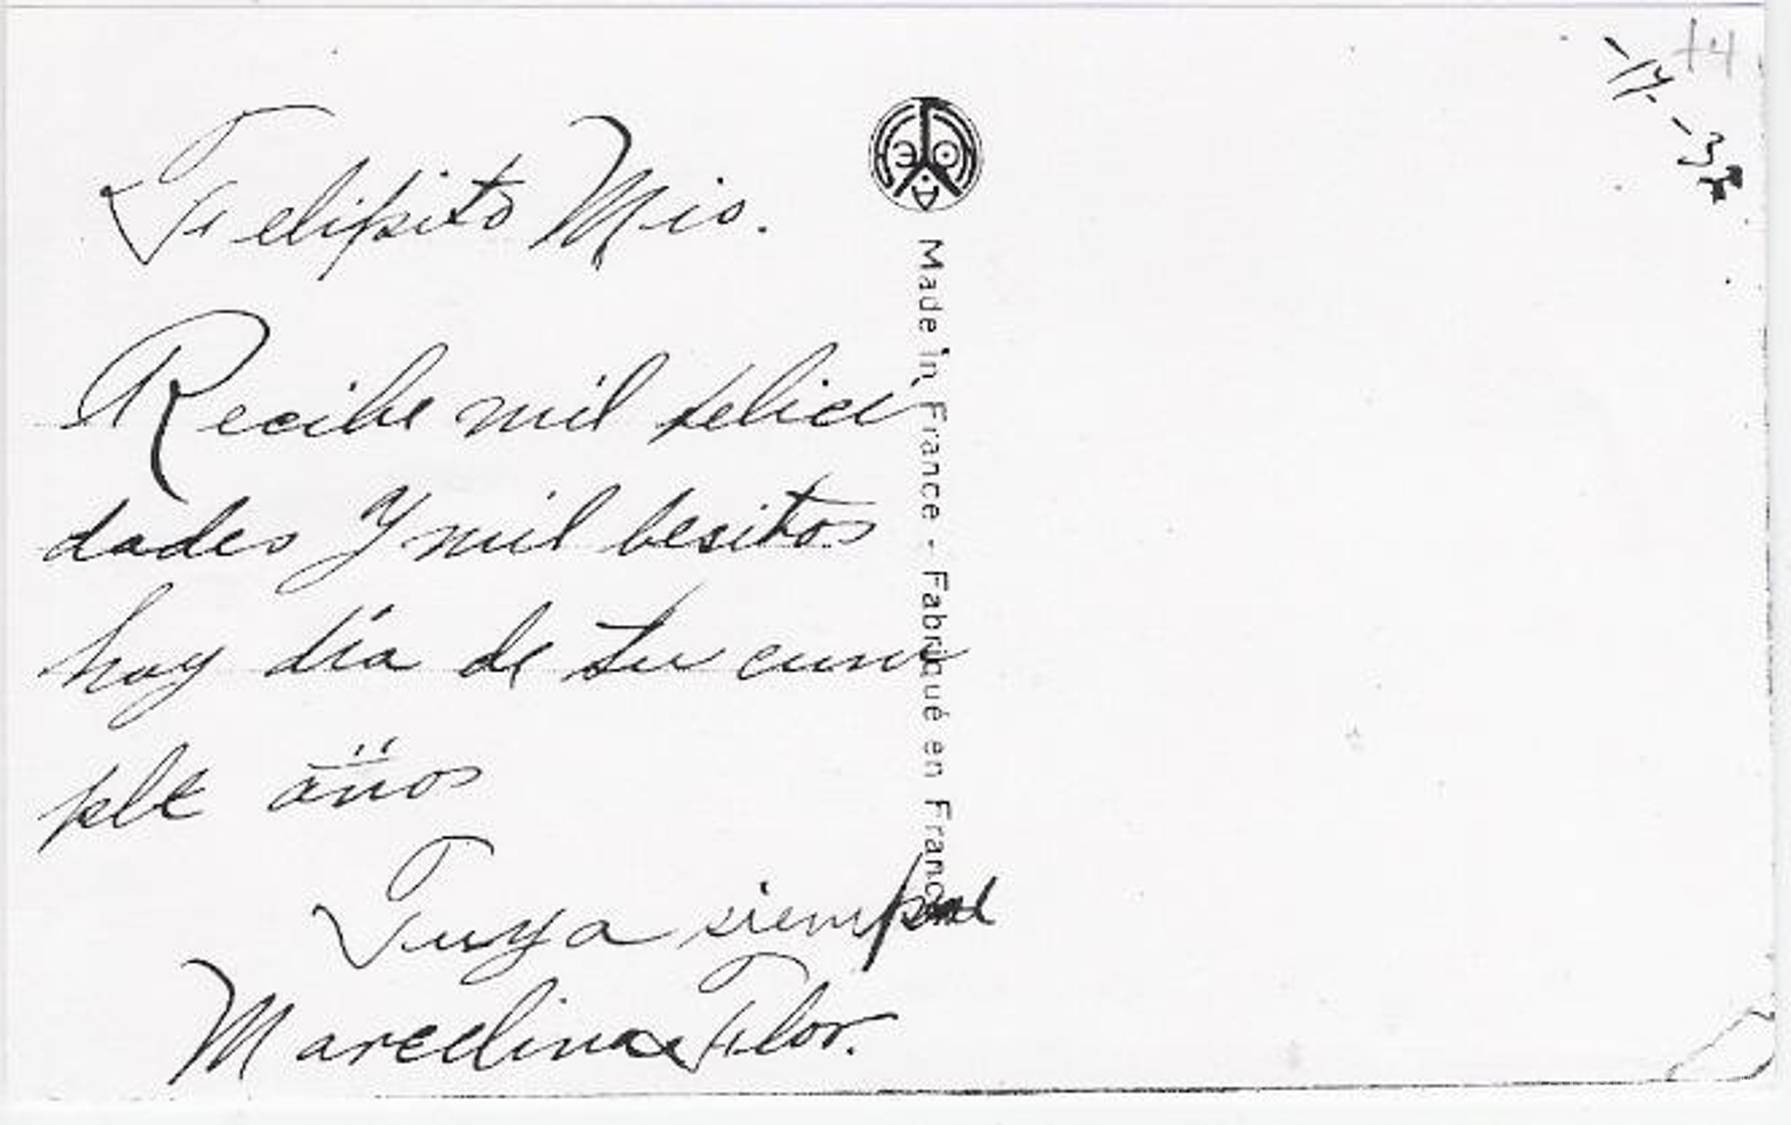 Felipito Mio.
Recibe mil felici
dades y mil besitos
hoy día de tu cum
ple años
Tuya siempre
Marcelina Flor.
Made in France - Fabriqué en France